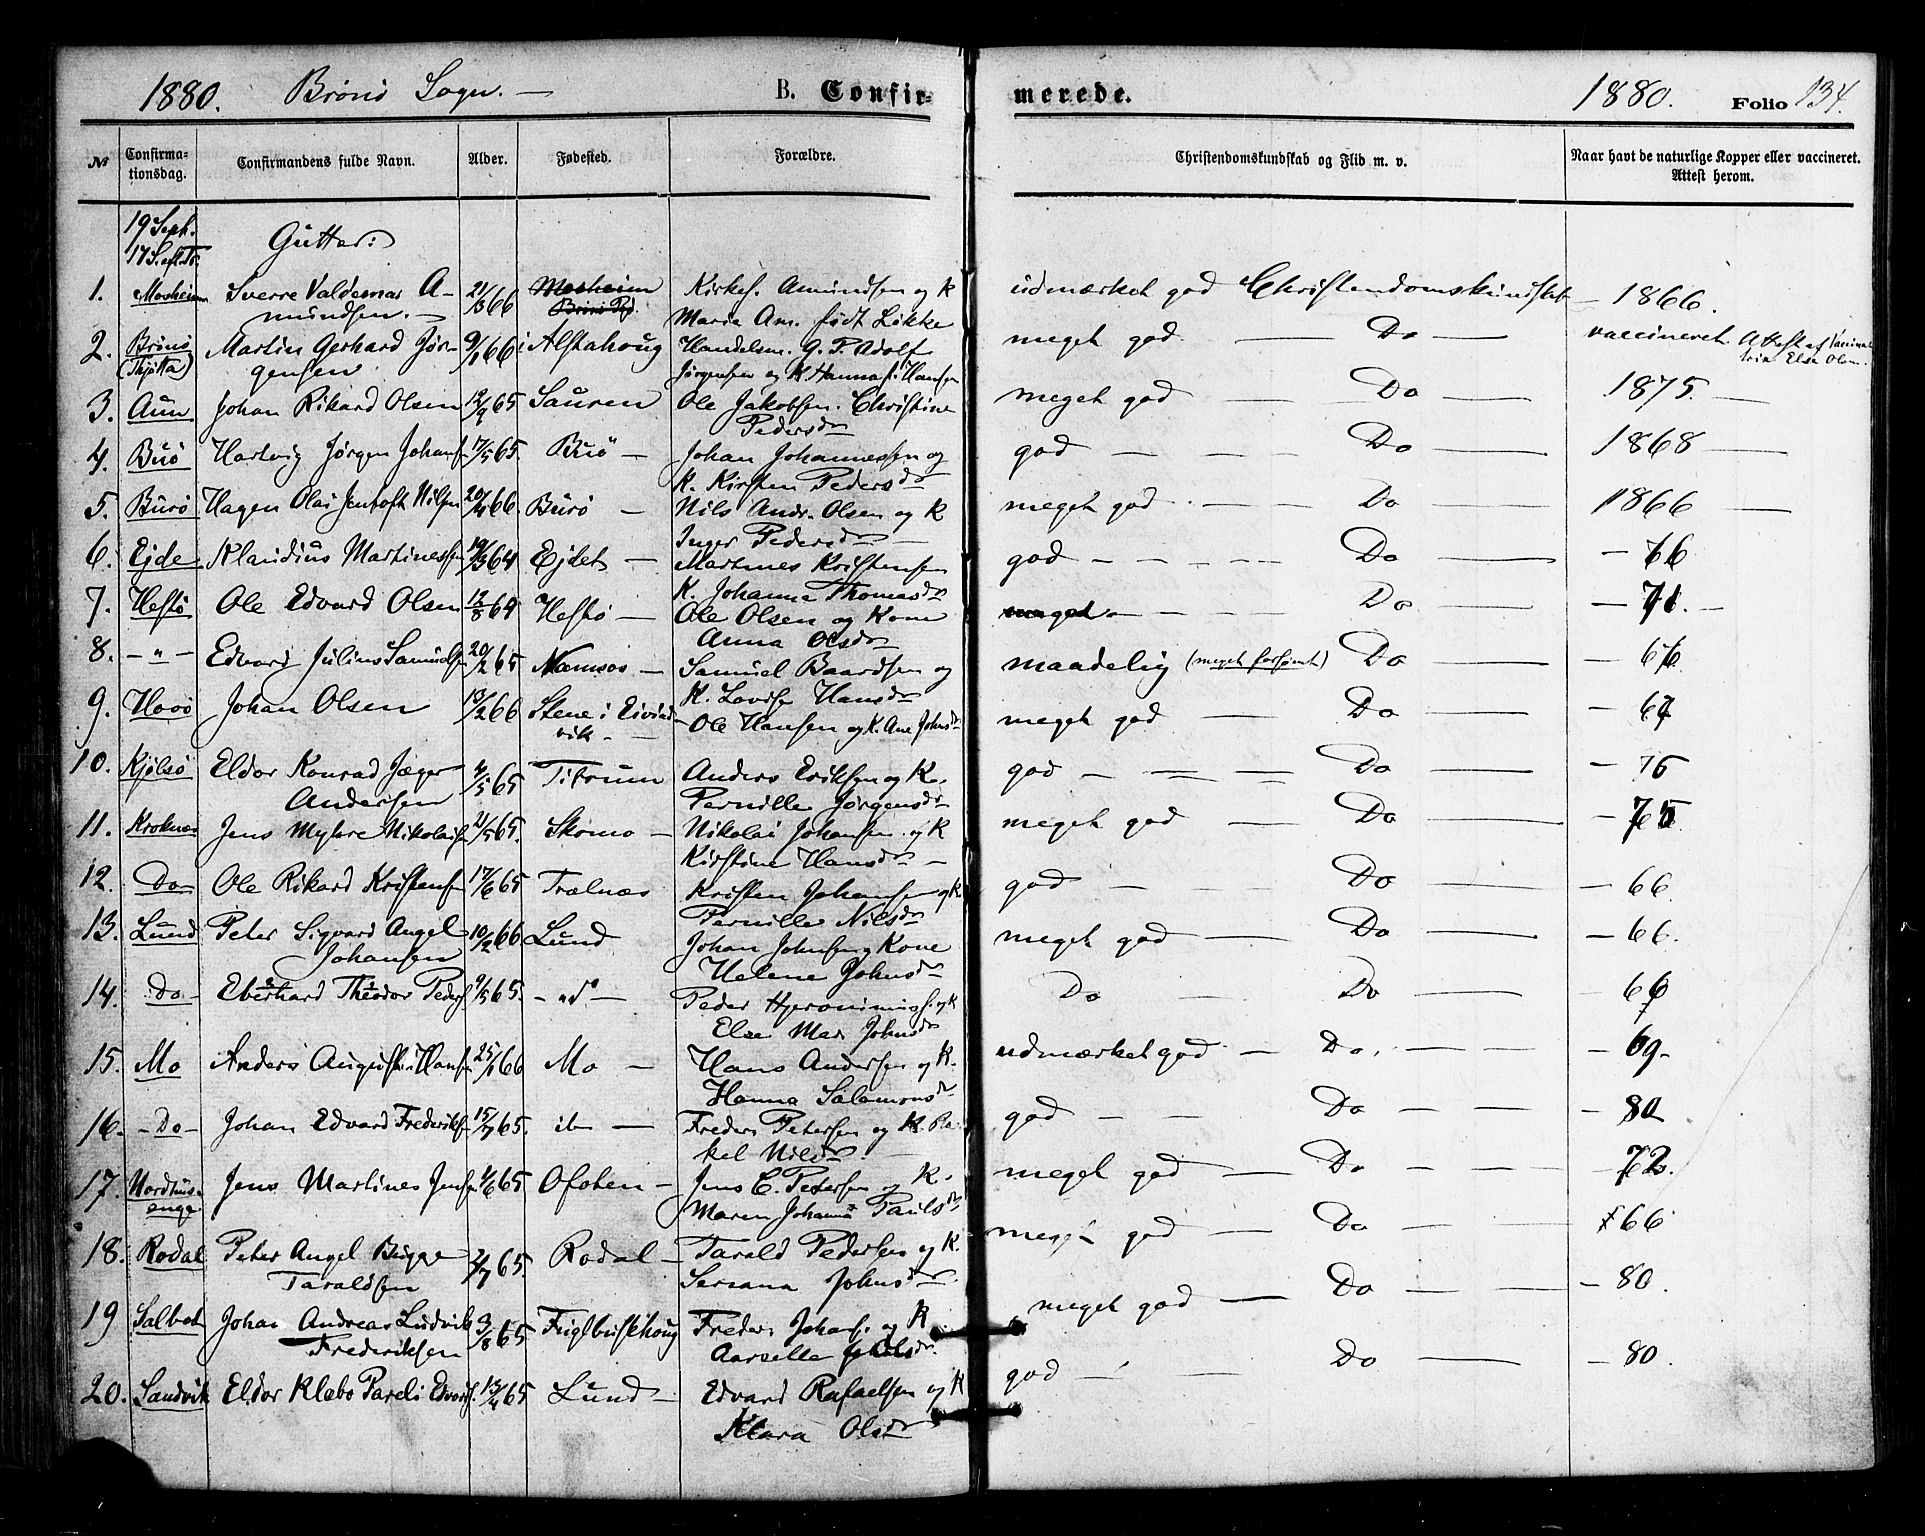 1880. Brönö Sogn. — B. Confir-merede. 1880. Folio 134.
№ Confirma-tionsdag. Confirmandens fulde Navn. Alder. Fødested. Forældre. Christendomskundskab og Flid m. v. Naar havt de naturlige Kopper eller vaccineret. Attest herom.
19 Sept.
17 S. eft. Tr. Gutter:
1. Mosheim Sverre Valdemar A- 21/3 66 Mosheim Kirkes. Amundsen og K udmærket god Christendomskundskab — 1866.
mundsen. — Brönö Pd. Maria Am. født Løkke
2. Brönö Martin Gerhard Jør- 9/1 66 i Alstahoug Handelsm. G. P. Adolf meget god — Do — vaccineret Attest af Vaccina-
(Thjøtta) gensen Jørgensen og K. Hanna f. Hansen trin Else Olsn.
3. Aun Johan Rikard Olsen 12/9 65 Sauren Ole Jakobsen. Christine meget god — Do — 1875. —
Pedersdr
4. Buö Hartvig Jørgen Johans. 17/5 65. Buö — Johan Johannessen og god — — Do — 1868 —
K. Kirsten Pedersdr
5. Burö Hagen Olai Jentoft Nilsen 20/4 66. Burö — Nils Andr. Olsen og K meget god — Do — 1866 —
Inger Pedersdr
6. Ejde Klaudius Martinessen 19/3 64 Ejdet — Martines Kristensen god — — — Do — — 66
K. Johanna Thomasdr
7. Hestö Ole Edvard Olsen 12/8 64 Hestö — Ole Olsen og Kone god — — — Do — — 71. —
Anna Olsdr
8. — " — Edvard Julius Samuelsen 20/2 65 Namsos — Samuel Baardsen og maadelig (meget forsömt) Do — — 66
K. Lovise Hansdr
9. Havö Johan Olsen 13/2 66 Stene i Eivind- Ole Hansen og K. Ane Johnsdr meget god — Do — — 67
vik. —
10. Kjølsö Eldor Konrad Jæger 4/5 65 Titrum Anders Eriksen og K. god — — — Do — — 75
Andersen Pernille Jørgensdr
11. Kroknes Jens Myhre Nikolais. 21/5 65. Skomo — Nikolai Johansen og K meget god — Do — — 75
Kirstine Hansdr —
12. Do Ole Rikard Kristens. 17/6 65 Trælnæs Kristen Johansen og K. god — Do — — 66
Pernille Nilsdr
13. Lund Peter Sigvard Angel 10/2 66 Lund Johan Johnsen og Kone meget god — Do — — 66.
Johansen Helene Johnsdr
14. Do — Eberhard Theodor Peders. 9/5 65. — "d" — Peder Hjeronimus. og K Do — Do — — 66
Else Mar. Johnsdr
15. Mo Anders Augustin Hansen 25/1 66 Mo — Hans Andersen og K. udmærket god — Do. — — — 69.
Hanna Salamonsdr
16. — Do — Johan Edvard Frederiks. 15/7 65. ib — Freder. Petersen og K. Ra- god — — Do — — — 80
kel Nilsdr —
17. Nordhus- Jens Martines Jensen 4/6 65 Ofoten — Jens C. Petersen og K. meget god — Do — — — 72.
enge Maren Johanna Paulsdr
18. Rodal Peter Angel Bugge 2/7 65. Rodal — Tarald Pedersen og K. meget god — Do — — 66
Taraldsen Seriana Johnsdr
19 Salbot Johan Andreas Ludvik 3/8 65 Fuglbuskhoug Freder. Johans. og K meget god — Do — — — 80.
Frederiksen Aarselle
20. Sandvik Eldor Klæbo Pareli Edvards. 13/4 65 Lund — Edvard Rafaelsen og K god — — Do — — 80.
Klara Olsdr